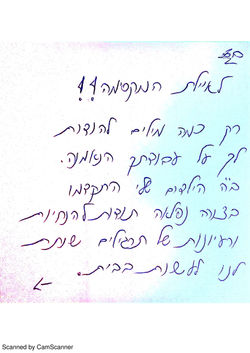 בס"ד
לאיילת המקסימה!!
רק כמה מילים להודות
לך על עבודתך הנאמנה.
ב"ה הילדים שלי התקדמו
בצורה נפלאה תודות להנחיות
ורעיונות של תרגילים שנתת
לנו לעשות בבית.
Scanned by CamScanner